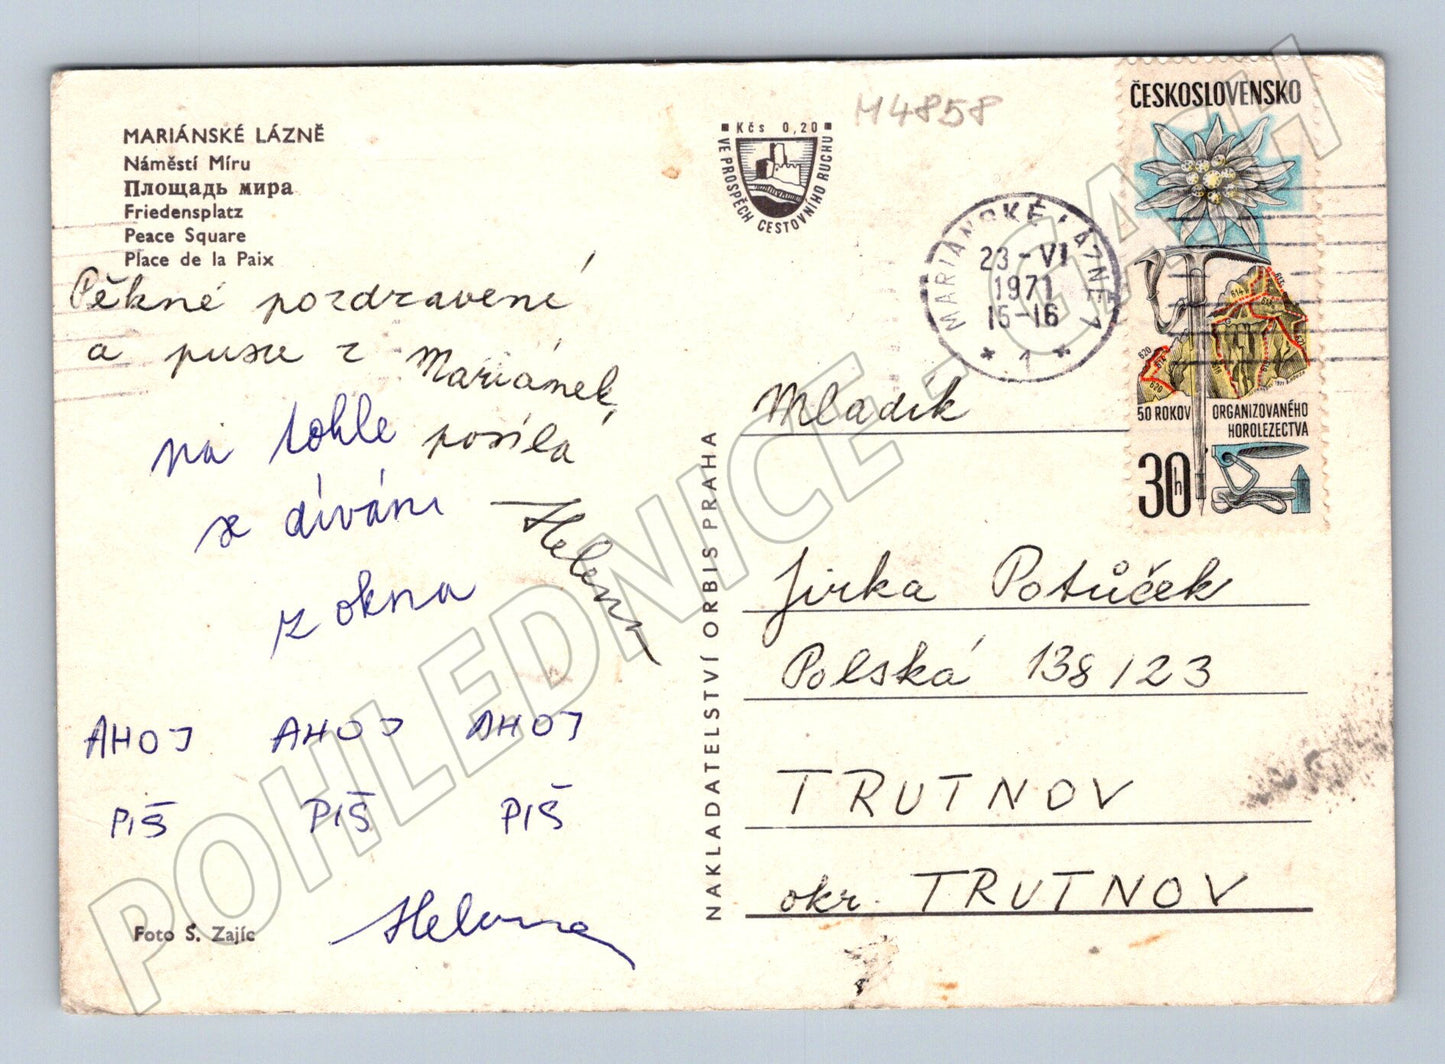 MARIÁNSKÉ LÁZNĚ
Náměstí Míru
Площадь мира
Friedensplatz
Peace Square
Place de la Paix
Pěkné pozdravení
a pusu z Mariánek,
posílá
Helena
na tohle
se dívám
z okna
AHOJ AHOJ AHOJ
PIŠ PIŠ PIŠ
Helena
Foto S. Zajíc
Kčs 0,20
VE PROSPĚCH CESTOVNÍHO RUCHU
M4858
NAKLADATELSTVÍ ORBIS PRAHA
MARIÁNSKÉ LÁZNĚ 1
23-VI
1971
15-16
1
ČESKOSLOVENSKO
50 ROKOV ORGANIZOVANÉHO
HOROLEZECTVA
30h
Mladík
Jirka Potůček
Polská 138/23
TRUTNOV
okr. TRUTNOV
POHLEDNICE - CASH